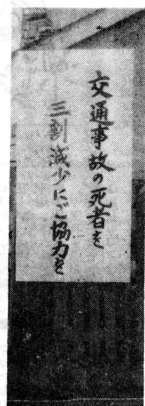 交通事故の死者を
三割減少にご協力を